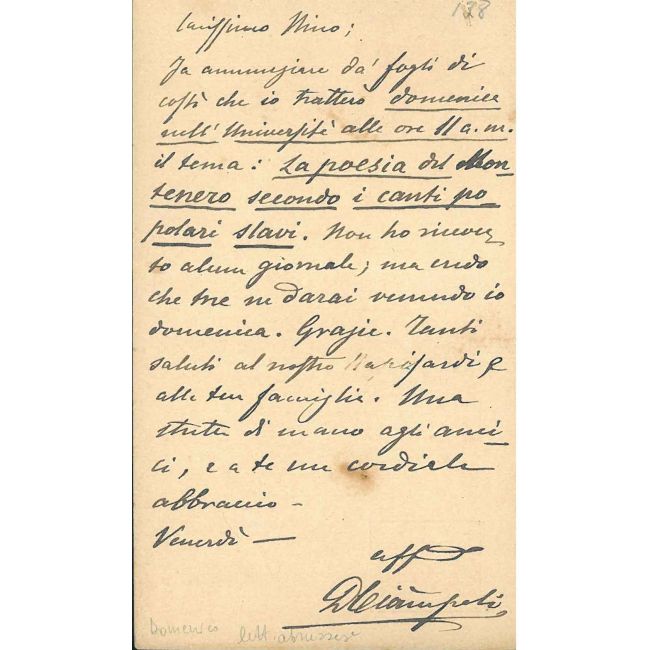 138
Carissimo Nino;
Fa annunziare da' fogli di
costì che io tratterò domenica
nell'Università alle ore 11 a.m.
il tema: La poesia del Mon-
tenero secondo i canti po
polari slavi. Non ho ricevu
to alcun giornale; ma credo
che me ne darai venendo io
domenica. Grazie. Tanti
saluti al nostro Rapisardi e
alla tua famiglia. Una
stretta di mano agli ami-
ci, e a te un cordiale
abbraccio -
Venerdì —
aff
DCiàmpoli
Domenico lett. abruzzese